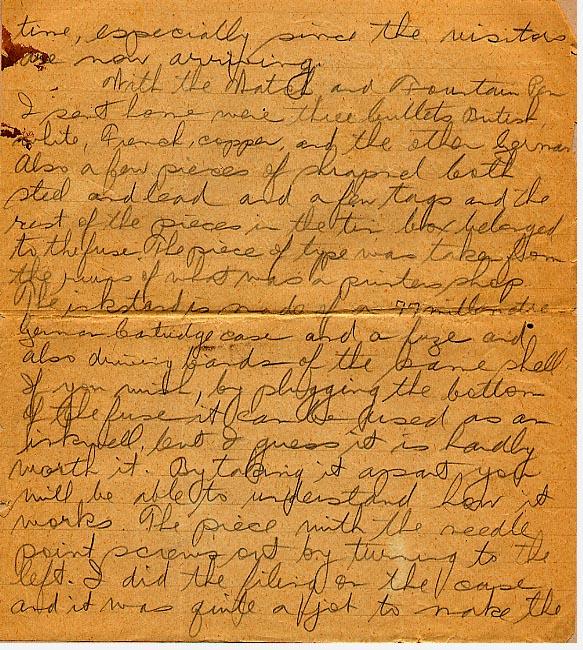 time, especially since the visitors
are now arriving.
With the Watch and Fountain Pen
I sent home were three bullets, British,
white, French, copper, and the other German
also a few pieces of shrapnel both
steel and lead and a few tags and the
rest of the pieces in the tin box belonged
to the fuse. The piece of type was taken from
the ruins of what was a printers shop.
The inkstand is made of a 77
German Catridge case and a fuze and
also driving bands of the same shell
If you wish, by plugging the bottom
of the fuse it can be used as an
inkwell, but I guess it is hardly
worth it. By taking it apart you
will be able to understand how it
works. The piece with the needle
point screws out by turning to the
left. I did the filing on the case
and it was quite a job to make the